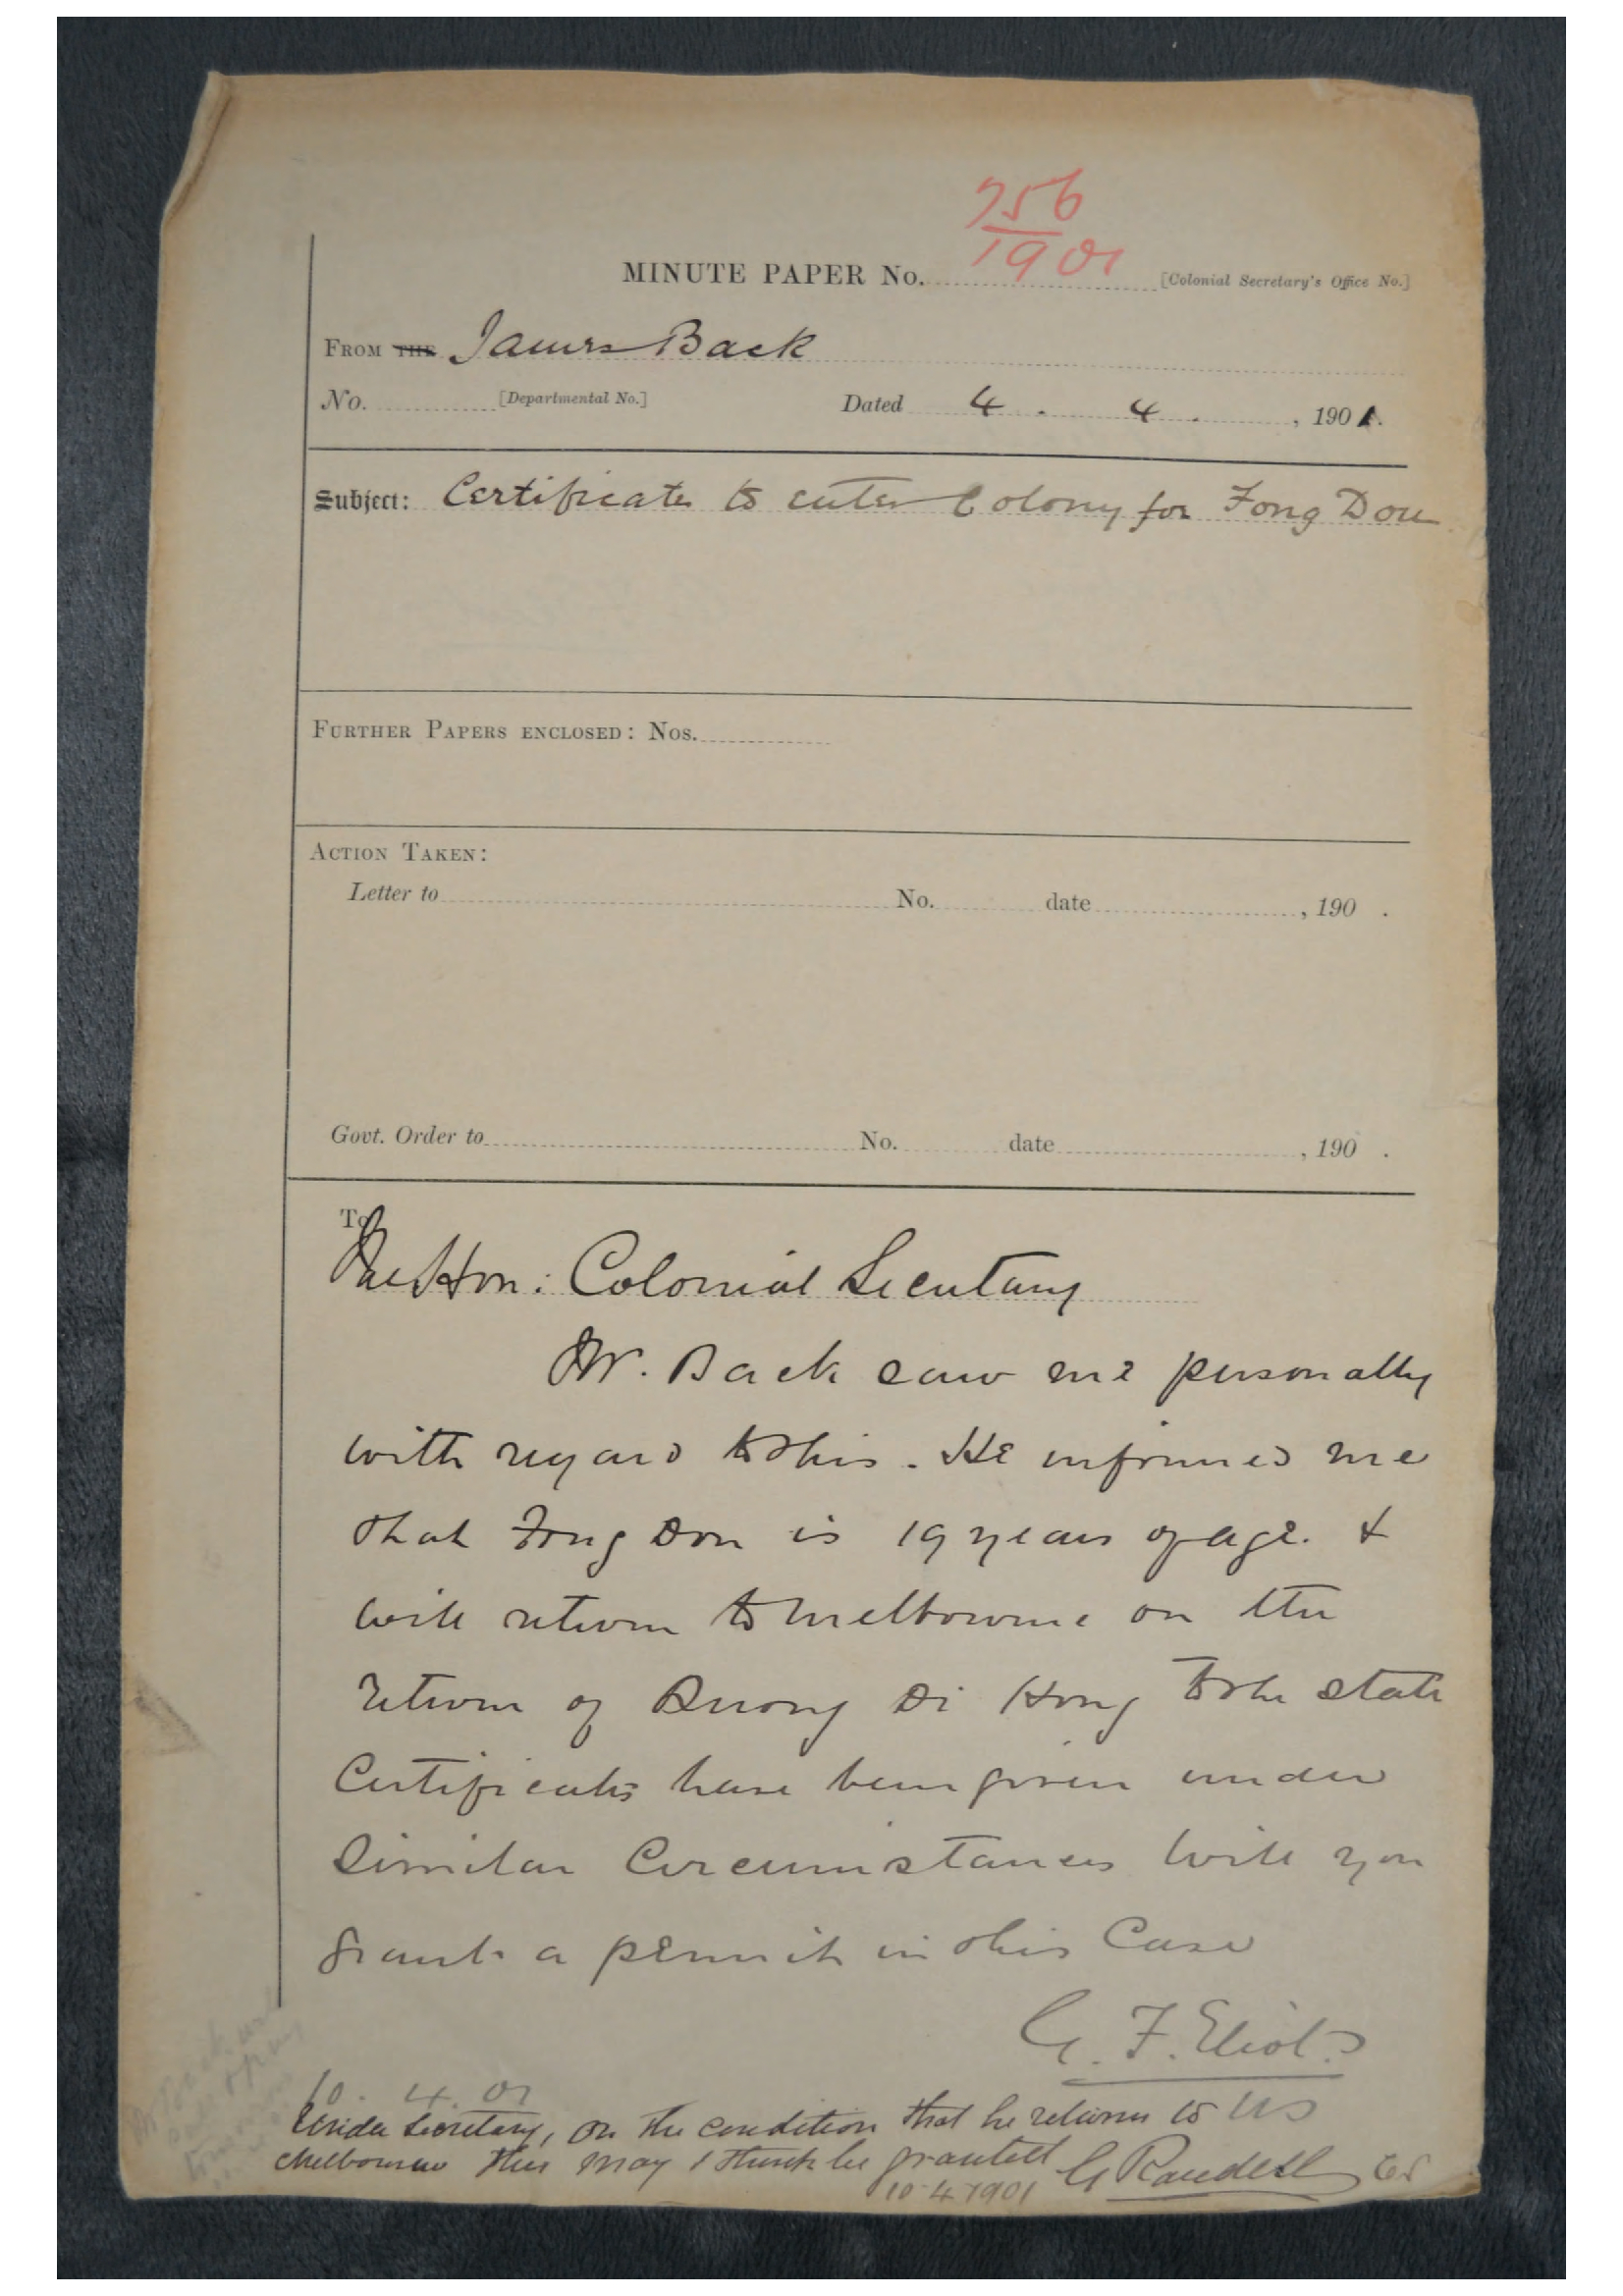 756
1901
MINUTE PAPER No. [Colonial Secretary's Office No.]
FROM THE James Back
No. [Departmental No.] Dated 4 . 4 . , 1901.
Subject: Certificate to enter Colony for Fong Don
FURTHER PAPERS ENCLOSED: Nos.
ACTION TAKEN:
Letter to No. date , 190 .
Govt. Order to No. date , 190 .
To
The Hon: Colonial Secretary
Mr. Back saw me personally
with regard to this. He informed me
that Fong Don is 19 years of age. &
will return to Melbourne on the
return of Di Hong to the State
Certificates have been given under
similar Circumstances Will you
grant a permit in this Case
G. F. Eliot
10. 4. 01 US
Under Secretary, on the condition that he returns to
Melbourne this may I think be granted G Randell CS
10.4.1901